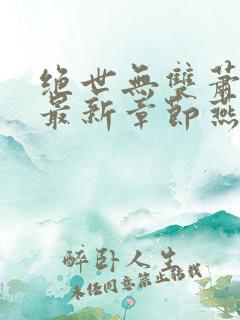 絕世無雙蕭
最新章節燕
醉卧人生
未经同意禁止转载